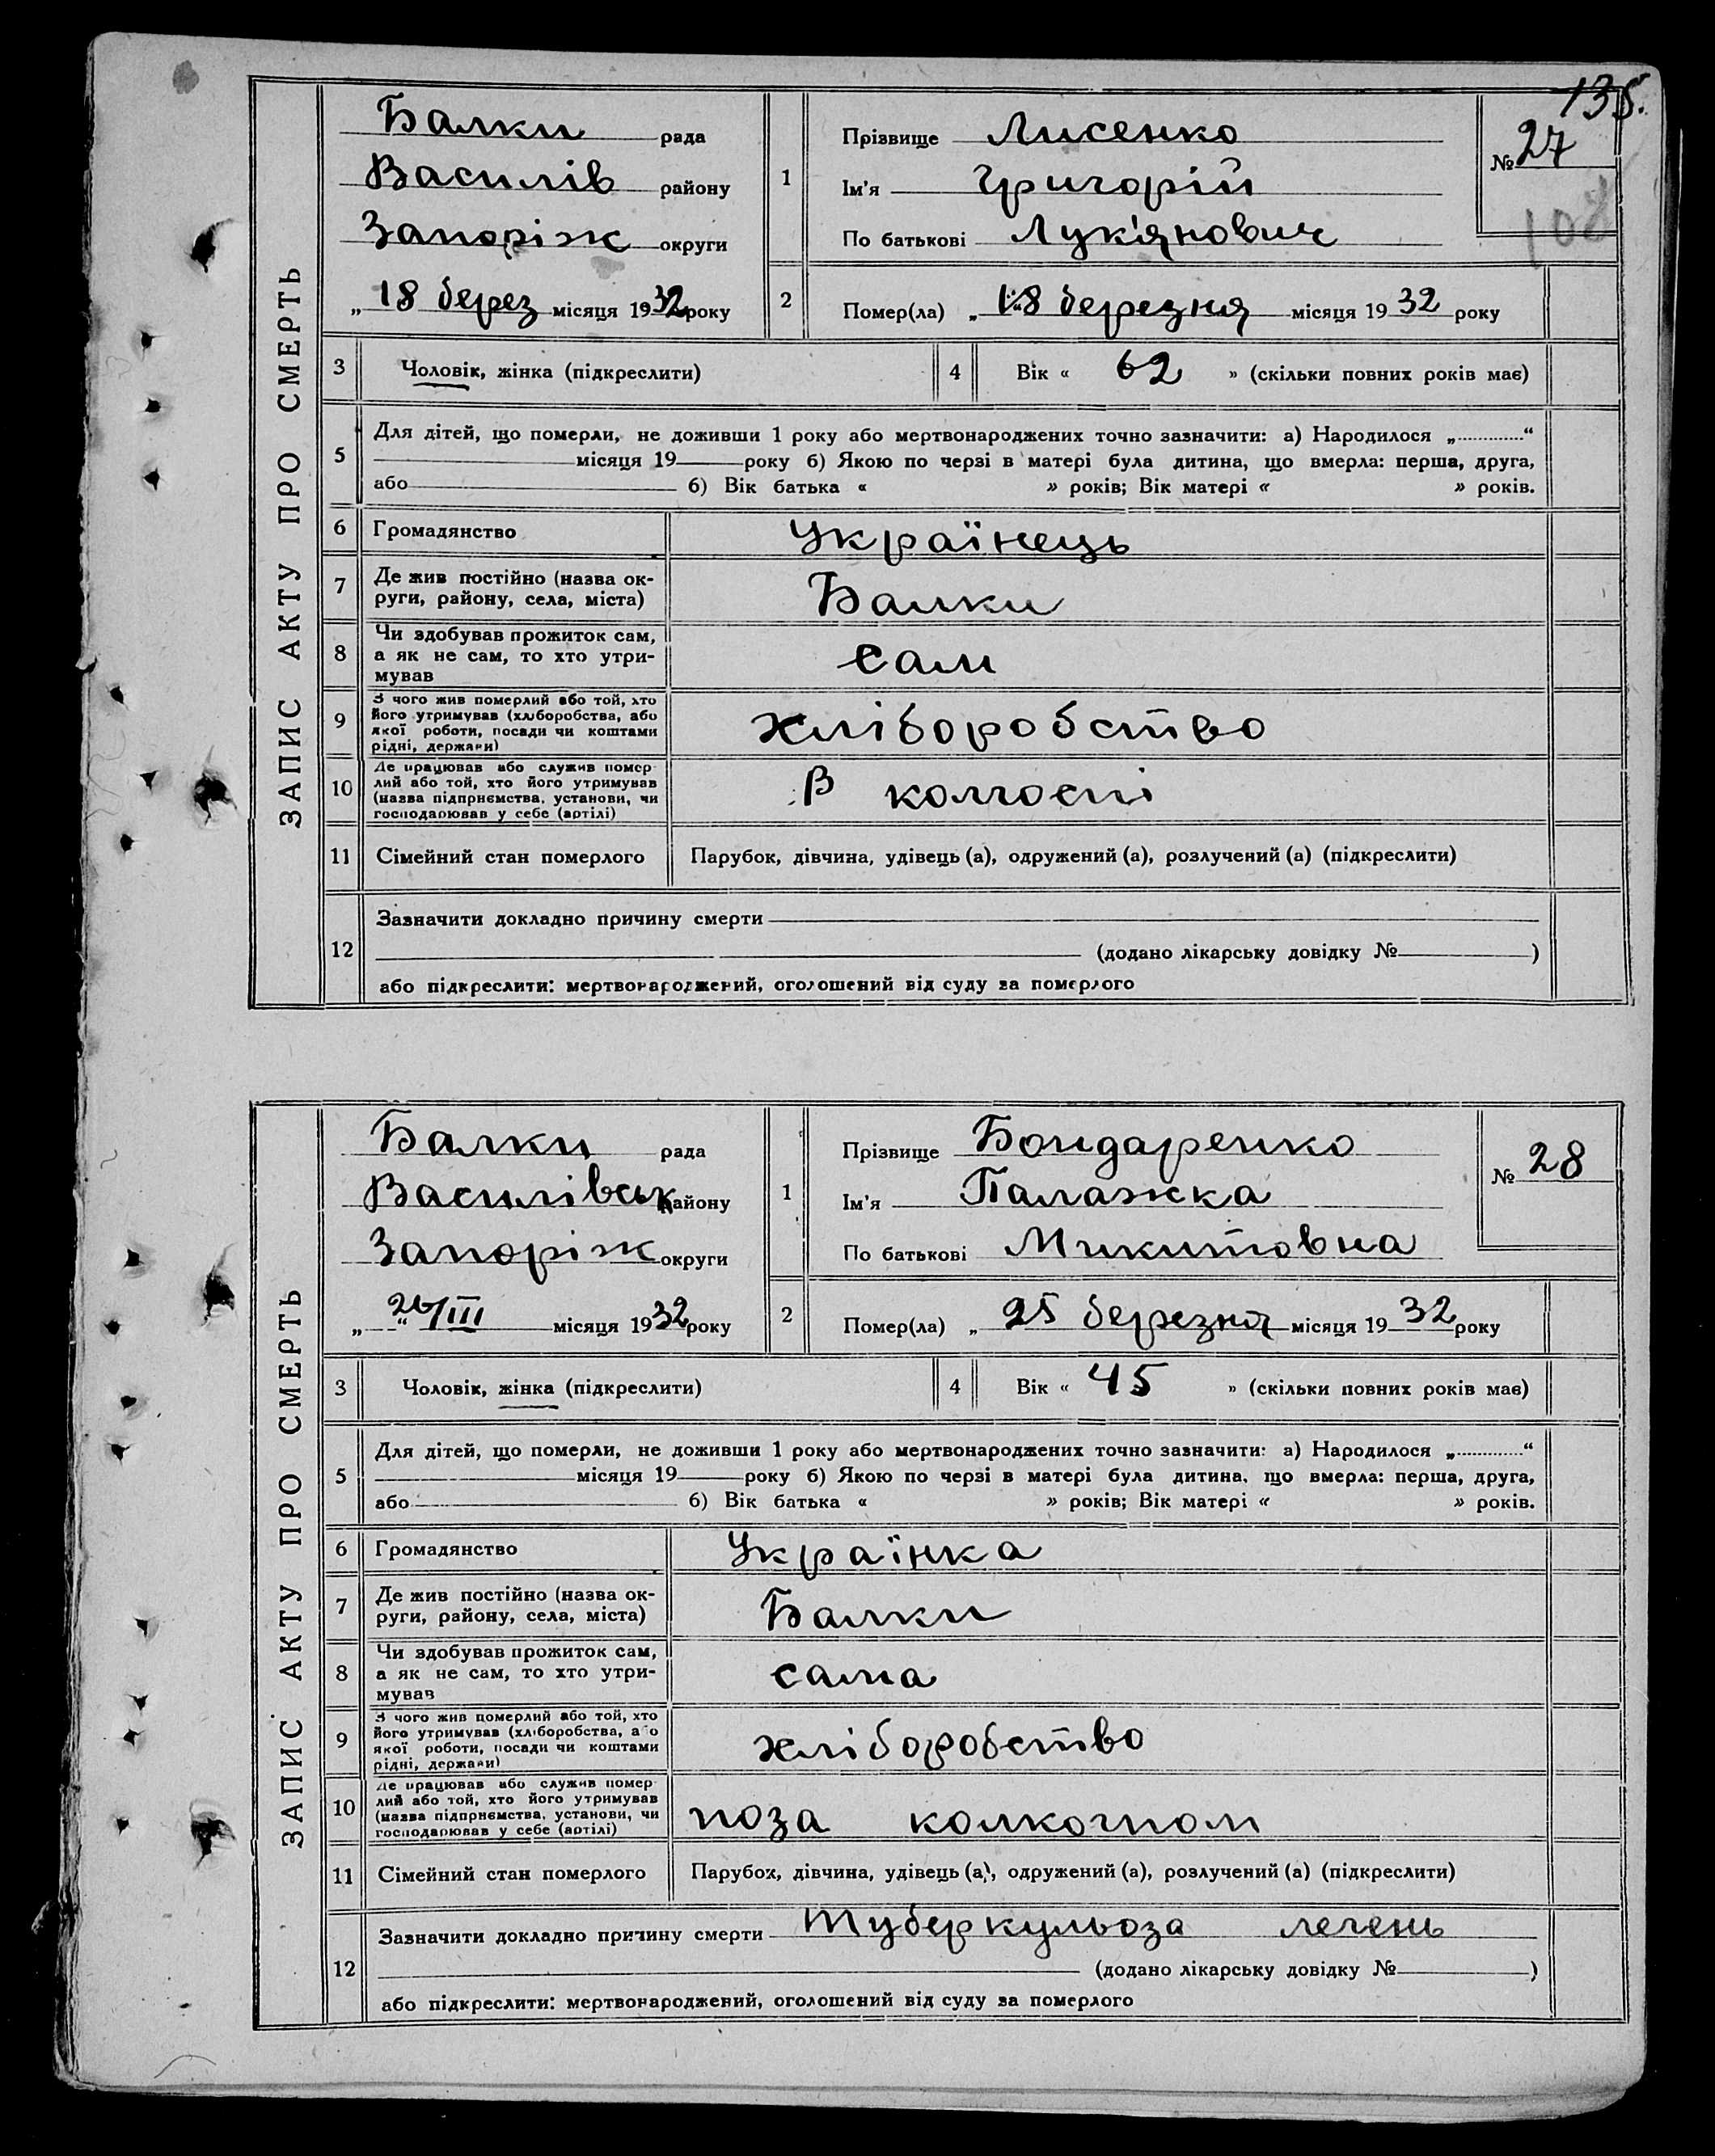 135.
ЗАПИС АКТУ ПРО СМЕРТЬ
Балки рада
Василів району
Запоріж округи
„ 18 берез місяця 1932 року
1 Прізвище Лисенко
Ім'я Григорій
По батькові Лук'янович
№ 27
108
2 Помер(ла) „ 18 березня місяця 19 32 року
3 Чоловік, жінка (підкреслити) 4 Вік « 62 » (скільки повних років має)
5 Для дітей, що померли, не доживши 1 року або мертвонароджених точно зазначити: а) Народилося „ “
місяця 19 року б) Якою по черзі в матері була дитина, що вмерла: перша, друга,
або б) Вік батька « » років; Вік матері « » років.
6 Громадянство Українець
7 Де жив постійно (назва ок-
руги, району, села, міста) Балки
8 Чи здобував прожиток сам,
а як не сам, то хто утри-
мував сам
9 З чого жив померлий або той, хто
його утримував (хліборобства, або
якої роботи, посади чи коштами
рідні, держави) хліборобство
10 Де працював або служив помер-
лий або той, хто його утримував
(назва підприємства, установи, чи
господарював у себе (артілі) В колгоспі
11 Сімейний стан померлого Парубок, дівчина, удівець (а), одружений (а), розлучений (а) (підкреслити)
12 Зазначити докладно причину смерти
(додано лікарську довідку № )
або підкреслити: мертвонароджений, оголошений від суду за померлого
ЗАПИС АКТУ ПРО СМЕРТЬ
Балки рада
Василівськ району
Запоріж округи
„ 26/III “ місяця 1932 року
1 Прізвище Бондаренко
Ім'я Палажка
По батькові Микитовна
№ 28
2 Помер(ла) „ 25 березня місяця 19 32 року
3 Чоловік, жінка (підкреслити) 4 Вік « 45 » (скільки повних років має)
5 Для дітей, що померли, не доживши 1 року або мертвонароджених точно зазначити: а) Народилося „ “
місяця 19 року б) Якою по черзі в матері була дитина, що вмерла: перша, друга,
або б) Вік батька « » років; Вік матері « » років.
6 Громадянство Українка
7 Де жив постійно (назва ок-
руги, району, села, міста) Балки
8 Чи здобував прожиток сам,
а як не сам, то хто утри-
мував сама
9 З чого жив померлий або той, хто
його утримував (хліборобства, або
якої роботи, посади чи коштами
рідні, держави) хліборобство
10 Де працював або служив помер-
лий або той, хто його утримував
(назва підприємства, установи, чи
господарював у себе (артілі) поза
11 Сімейний стан померлого Парубок, дівчина, удівець (а), одружений (а), розлучений (а) (підкреслити)
12 Зазначити докладно причину смерти Туберкульоза легень
(додано лікарську довідку № )
або підкреслити: мертвонароджений, оголошений від суду за померлого